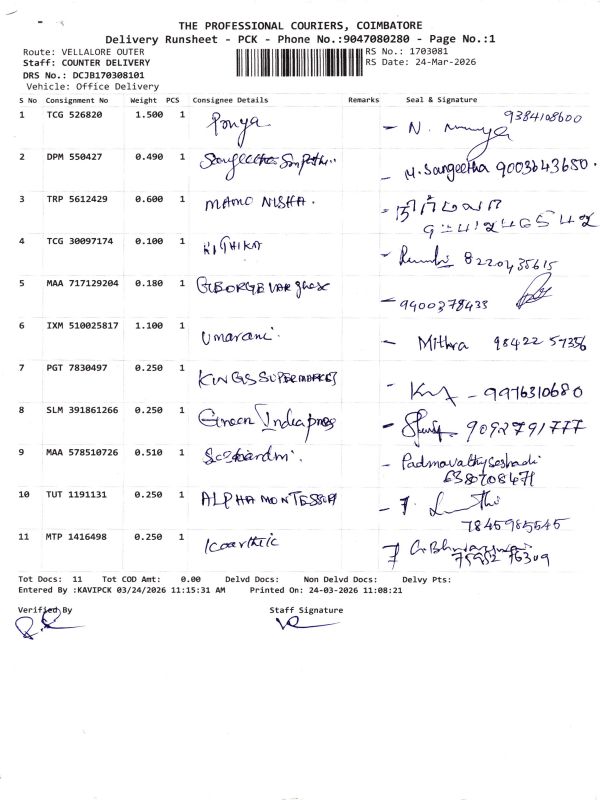 THE PROFESSIONAL COURIERS, COIMBATORE
Delivery Runsheet - PCK - Phone No.:9047080280 - Page No.:1
Route: VELLALORE OUTER RS No.: 1703081
Staff: COUNTER DELIVERY RS Date: 24-Mar-2026
DRS No.: DCJB170308101
Vehicle: Office Delivery
S No Consignment No Weight PCS Consignee Details Remarks Seal & Signature
1 TCG 526820 1.500 1 Ponya 9384108600
2 DPM 550427 0.490 1 Sangeetha - M. Sangeetha 9003643650.
3 TRP 5612429 0.600 1 MANO NISHA.
4 TCG 30097174 0.100 1 KITHIKA - 8220435615
5 MAA 717129204 0.180 1 GEORGE VARghese - 9400378433
6 IXM 510025817 1.100 1 Umarani. - Mithra 98422 57356
7 PGT 7830497 0.250 1 KINGS SUPERMARKET - 9976310680
8 SLM 391861266 0.250 1 Green India press - 9092791777
9 MAA 578510726 0.510 1 - Padmavathy Seshadi
6380708471
10 TUT 1191131 0.250 1 ALPHA MONTESSORI
7845985545
11 MTP 1416498 0.250 1 Kaarthic
75982 76309
Tot Docs: 11 Tot COD Amt: 0.00 Delvd Docs: Non Delvd Docs: Delvy Pts:
Entered By :KAVIPCK 03/24/2026 11:15:31 AM Printed On: 24-03-2026 11:08:21
Verified By Staff Signature